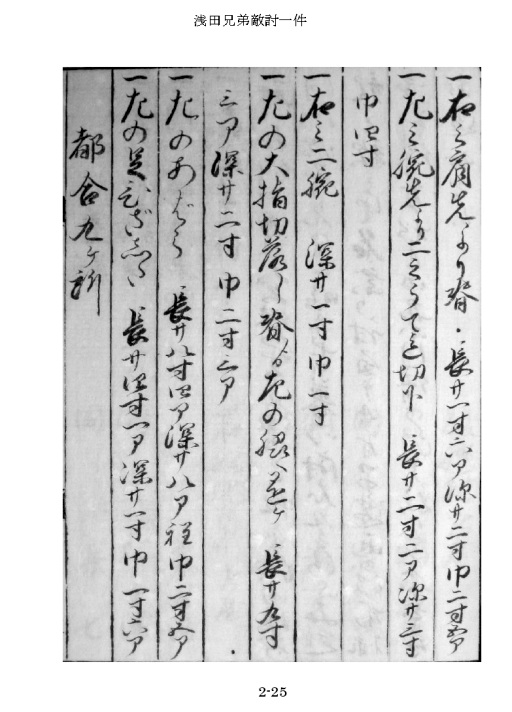 浅田兄弟敵討一件
一右之肩先より脊 長サ一寸六分深サ二寸巾二寸五分
一左之腕先より二之うで迄切下 長サ二寸二分深サ三寸
巾四寸
一右之二腕 深サ一寸巾一寸
一左の大指切落し脊より左の脇へかけ 長サ九寸
三分深サ二寸巾二寸三分
一左のあばら 長サ八寸四分深サ八分程巾二寸五分
一左の足ひざ 長サ四寸一分深サ一寸巾一寸六分
都合九ヶ所
2-25